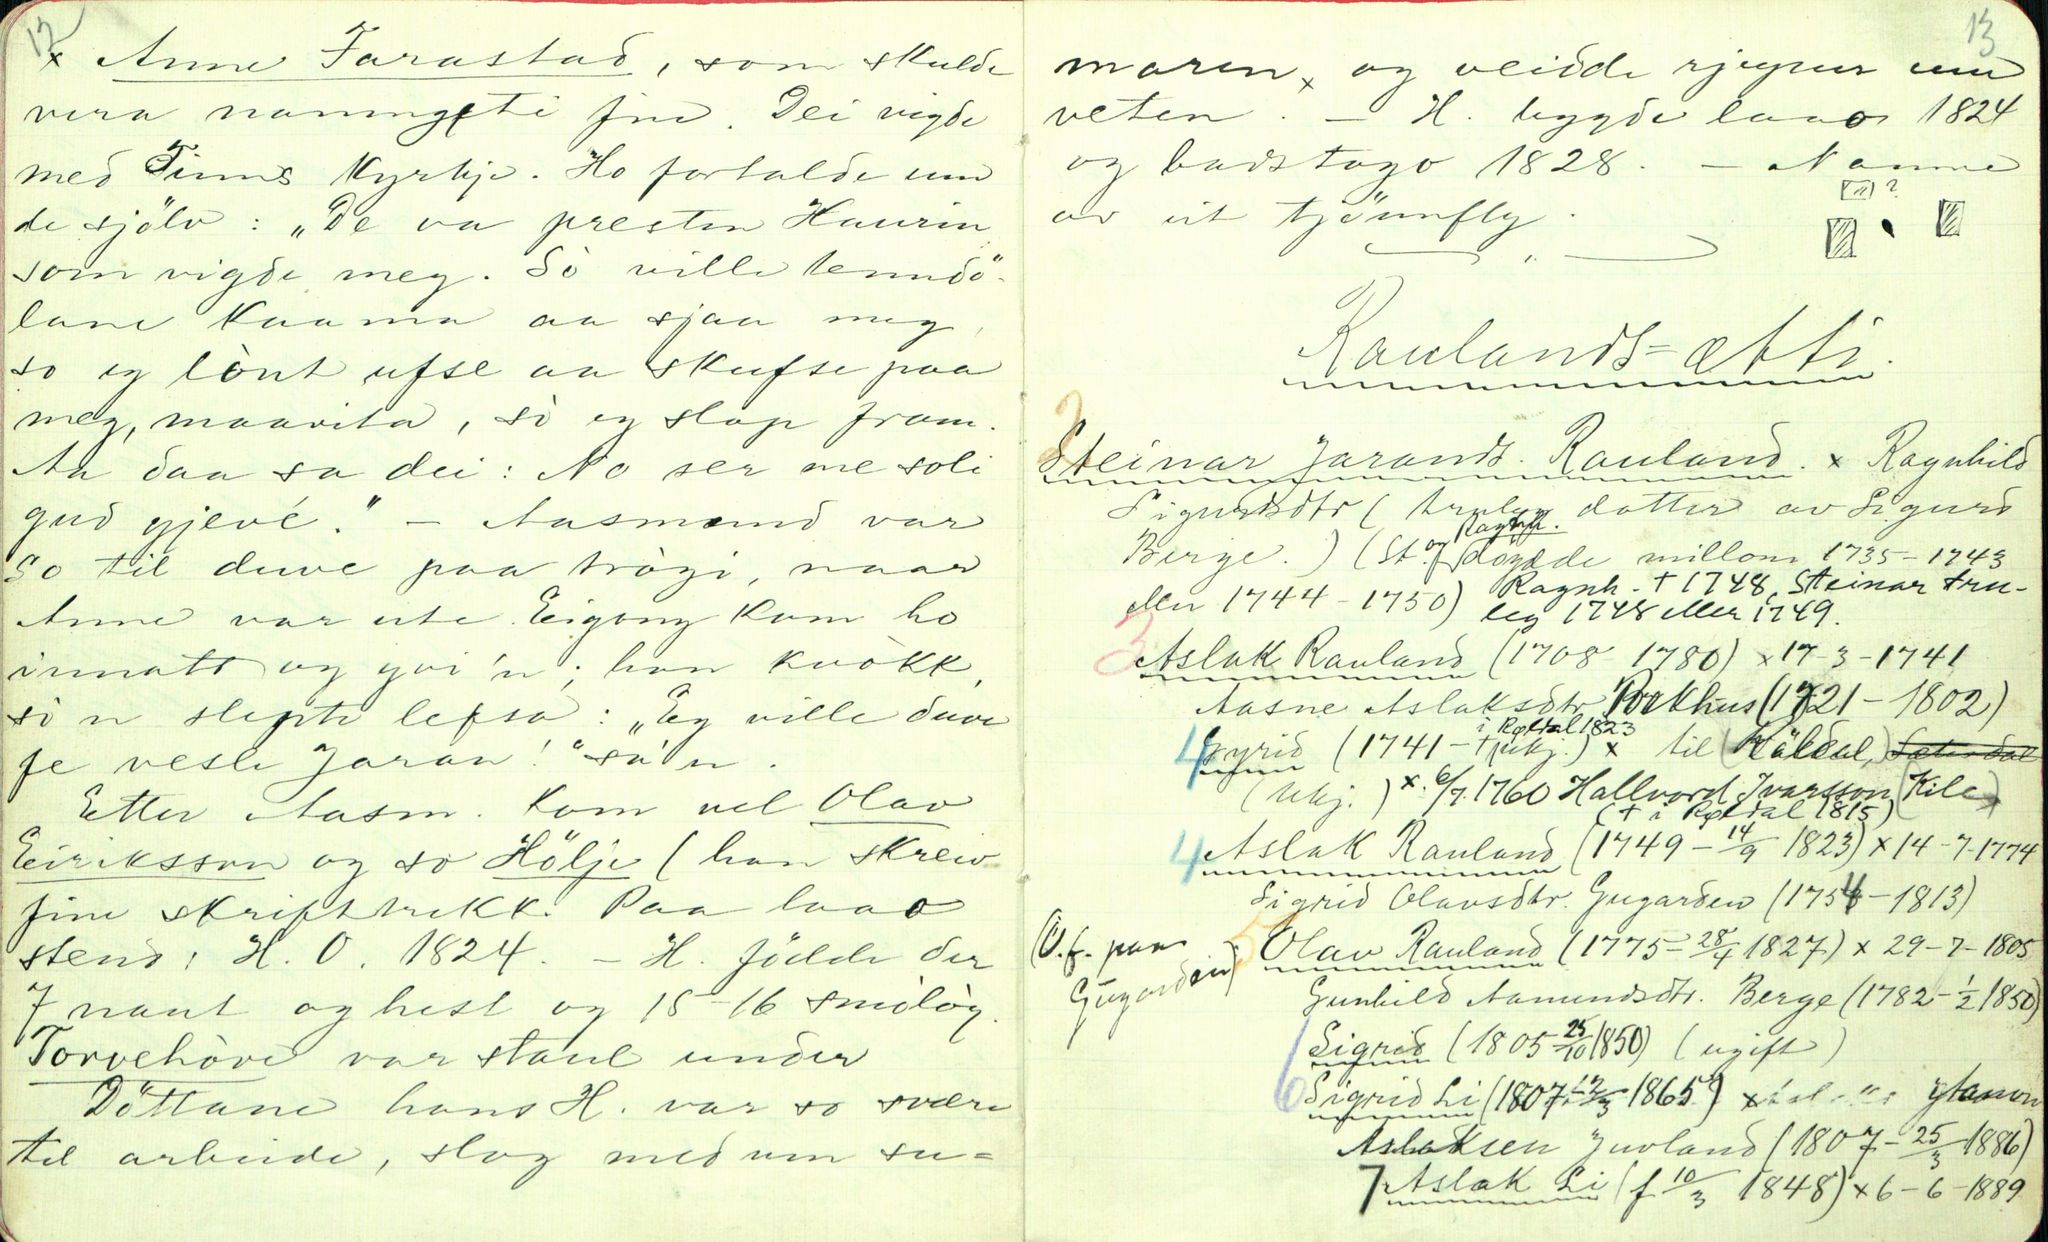 12
x Anne Farastad, som skulde
vera namngjeti fin. Dei vigde
med Tinns Kyrkje. Ho fortalde um
de sjölv: „De va presten Haurin
som vigde meg. Sò ville tenndö-
lane kaama aa sjaa meg,
so eg lònt ufse aa skufse paa
meg, maavita, sò eg slap fram.
Aa daa sa dei: No ser me soli
gud gjevé." – Aasmund var
so til duve paa tròği, naar
Anne var ute. Eigong kom ho
innatt og gòi 'n; han kvòkk,
sò 'n slepte lefsa: „Eg ville duve
fe vesle Jaran!" sa'n.
Etter Aasm. kom vel Olav
Eiriksson og so Hölje (han skreiv
fine skrifttrekk. Paa laao
stend: H. O. 1824. – H. födde der
7 naut og hest og 15-16 smòlòg.
Torvehòvd var staul under
Döttane hans H. var so svære
til arbeide, slog med um su=
13
maren x og veidde rjupur um
veten. – H. bygde laao 1824
og badstogo 1828. – Namne
av eit tjönnfly.
?
Raulands=ætti.
2
Steinar Jarands. Rauland. x Ragnhild
Sigurdsdtr (truleg dotter av Sigurd
Berge.) (St. og Ragnh. döydde millom 1735-1743
eller 1744-1750) Ragnh. † 1748, Steinar tru-
leg 1748 eller 1749.
3 Aslak Rauland (1708-1780) x 17-3-1741
Aasne Aslaksdtr Porkhus (1721-1802)
i Rǿldal 1823
4 Gyrid (1741- † ukj.) x til (Röldal,
(ukj.) x. 6/7. 1760 Hallvord Ivarsson (Kile)
(† i Rǿldal 1815)
4 Aslak Rauland (1749-14/9 1823) x 14-7-1774
Sigrid Olavsdtr. Gugarden (1754-1813)
(U.f. paa Gugarden)
5 Olav Rauland (1775-28/4 1827) x 29-7-1805
Gunhild Aamundsdtr. Berge (1782-1/2 1850)
Sigrid (1805-25/10 1850) (ugift)
6 Sigrid Li (1807-12/3 1865) x
Aslaksen Juvland (1807-25/3 1886)
7 Aslak Li (f. 10/3 1848) x 6-6-1889